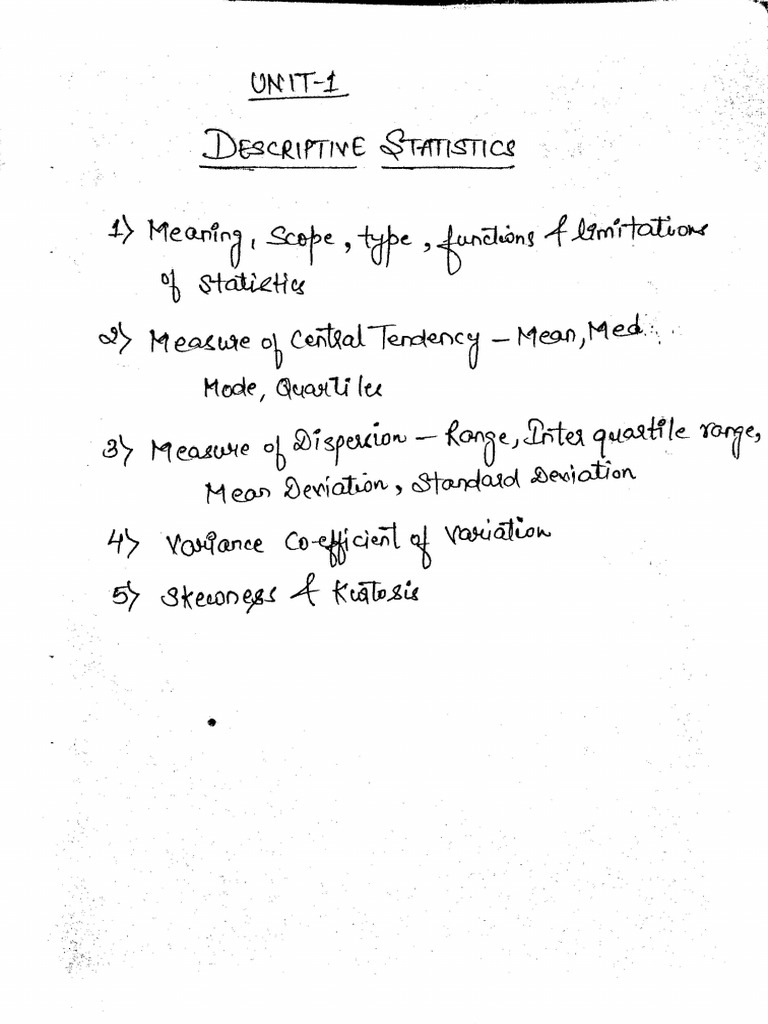 UNIT-1
DESCRIPTIVE STATISTICS
1) Meaning, Scope, type, functions & limitations
of statistics
2) Measure of Central Tendency - Mean, Med
Mode, Quartiles
3) Measure of Dispersion - Range, Inter quartile range,
Mean Deviation, Standard Deviation
4) Variance Co-efficient of variation
5) Skewness & Kurtosis